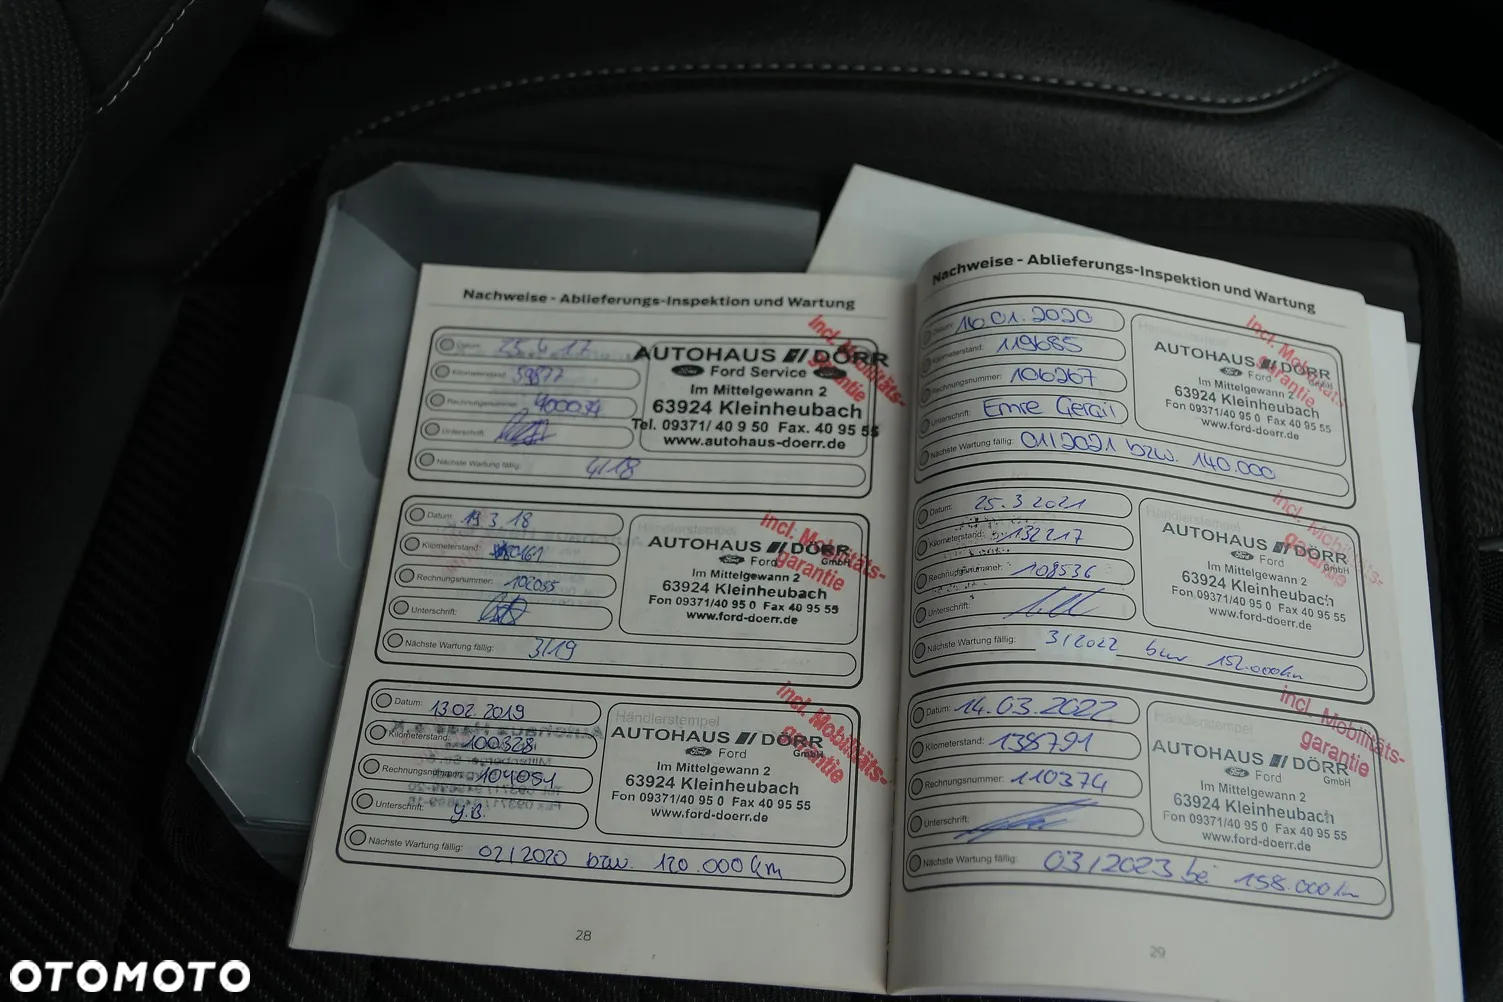 Nachweise - Ablieferungs-Inspektion und Wartung
Datum: 25.4.17
Kilometerstand: 59877
Rechnungsnummer:
Unterschrift:
Nächste Wartung fällig: 4/18
AUTOHAUS DÖRR
Ford Service
Im Mittelgewann 2
63924 Kleinheubach
Tel. 09371/ 40 9 50 Fax. 40 95 55
www.autohaus-doerr.de
incl. Mobilitäts-
garantie
Datum: 19.3.18
Kilometerstand:
Rechnungsnummer:
Unterschrift:
Nächste Wartung fällig: 3/19
Händlerstempel
AUTOHAUS DÖRR
Ford GmbH
Im Mittelgewann 2
63924 Kleinheubach
Fon 09371/40 95 0 Fax 40 95 55
www.ford-doerr.de
incl. Mobilitäts-
garantie
Datum: 13.02.2019
Kilometerstand: 100328
Rechnungsnummer: 104051
Unterschrift: y.B.
Nächste Wartung fällig: 02/2020 bzw. 120.000 km
Händlerstempel
AUTOHAUS DÖRR
Ford GmbH
Im Mittelgewann 2
63924 Kleinheubach
Fon 09371/40 95 0 Fax 40 95 55
www.ford-doerr.de
incl. Mobilitäts-
garantie
28
Nachweise - Ablieferungs-Inspektion und Wartung
Datum: 16.01.2020
Kilometerstand: 119685
Rechnungsnummer: 106267
Unterschrift: Emre Gerail
Nächste Wartung fällig: 01/2021 bzw. 140.000
Händlerstempel
AUTOHAUS DÖRR
Ford GmbH
Im Mittelgewann 2
63924 Kleinheubach
Fon 09371/40 95 0 Fax 40 95 55
www.ford-doerr.de
incl. Mobilitäts-
garantie
Datum: 25.3.2021
Kilometerstand: 132217
Rechnungsnummer: 108536
Unterschrift:
Nächste Wartung fällig: 3/2022 bzw 152.000km
Händlerstempel
AUTOHAUS DÖRR
Ford GmbH
Im Mittelgewann 2
63924 Kleinheubach
Fon 09371/40 95 0 Fax 40 95 55
www.ford-doerr.de
incl. Mobilitäts-
garantie
Datum: 14.03.2022
Kilometerstand: 138791
Rechnungsnummer: 110374
Unterschrift:
Nächste Wartung fällig: 03/2023 bei 158.000km
Händlerstempel
AUTOHAUS DÖRR
Ford GmbH
Im Mittelgewann 2
63924 Kleinheubach
Fon 09371/40 95 0 Fax 40 95 55
www.ford-doerr.de
incl. Mobilitäts-
garantie
29
OTOMOTO